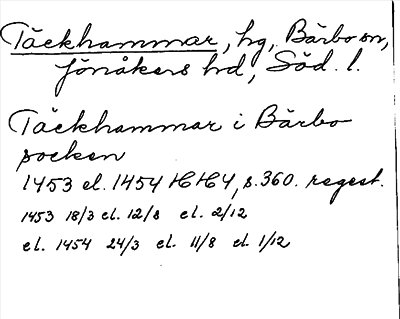 Täckhammar, hg, Bärbo sn,
Jönåkers hd, Söd. l.
Täckhammar i Bärbo
socken
1453 el. 1454 HH4, s. 360. regest.
1453 18/3 el. 12/8 el. 2/12
el. 1454 24/3 el. 11/8 el. 1/12